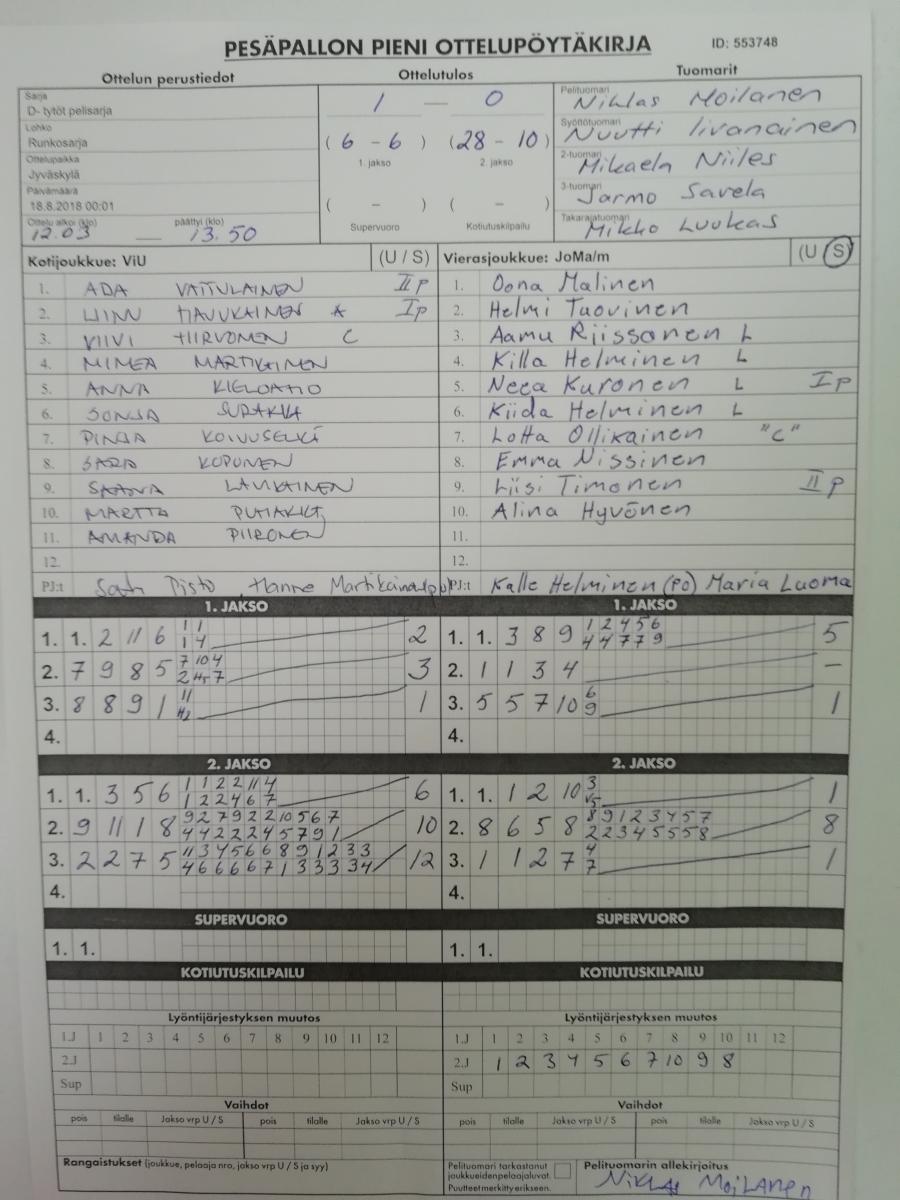 PESÄPALLON PIENI OTTELUPÖYTÄKIRJA ID: 553748
Ottelun perustiedot Ottelutulos Tuomarit
Sarja
D- tytöt pelisarja
Lohko
Runkosarja
Ottelupaikka
Jyväskylä
Päivämäärä
18.8.2018 00:01
Ottelu alkoi (klo) päättyi (klo)
12.03 — 13.50
1 — 0
( 6 - 6 ) ( 28 - 10 )
1. jakso 2. jakso
( - ) ( - )
Supervuoro Kotiutuskilpailu
Pelituomari Niklas Moilanen
Syöttötuomari Nuutti Iivanainen
2-tuomari Mikaela Niiles
3-tuomari Jarmo Savela
Takarajatuomari Mikko Luukas
Kotijoukkue: ViU (U / S) Vierasjoukkue: JoMa/m (U / S)
1. ADA VAITULAINEN II p
2. LINN HAUUKAINEN A I p
3. VIIVI HIRVONEN C
4. MIMEA MARTIKAINEN
5. ANNA KIELOAHO
6. SONJA SURAKKA
7. PINJA KOIVUSELKÄ
8. SARA KOPONEN
9. SAANA LAUKAINEN
10. MARTTA PUHAKKA
11. AMANDA PIIRONEN
12.
PJ:t Pisto, Hanne
1. Oona Malinen
2. Helmi Tuovinen
3. Aamu Riissanen L
4. Killa Helminen L
5. Neea Kuronen L I p
6. Kiida Helminen L
7. Lotta Ollikainen "C"
8. Emma Nissinen
9. Liisi Timonen II p
10. Alina Hyvönen
11.
12.
PJ:t Kalle Helminen (PJ) Maria Luoma
1. JAKSO 1. JAKSO
1. 1. 2 11 6 1 1 2
1 4
2. 7 9 8 5 7 10 4 3
2 H5 7
3. 8 8 9 1 11 1
H2
4.
1. 1. 3 8 9 1 2 4 5 6 5
4 4 7 7 9
2. 1 1 3 4 —
3. 5 5 7 10 6 1
9
4.
2. JAKSO 2. JAKSO
1. 1. 3 5 6 1 1 2 2 11 4 6
1 2 2 4 6 7
2. 9 11 1 8 9 2 7 9 2 2 10 5 6 7 10
4 4 2 2 2 4 5 7 9 1
3. 2 2 7 5 11 3 4 5 6 6 8 9 1 2 3 3 12
4 6 6 6 6 7 1 3 3 3 3 4
4.
1. 1. 1 2 10 3 1
V5
2. 8 6 5 8 8 9 1 2 3 4 5 7 8
2 2 3 4 5 5 5 8
3. 1 1 2 7 4 1
7
4.
SUPERVUORO SUPERVUORO
1. 1. 1. 1.
KOTIUTUSKILPAILU KOTIUTUSKILPAILU
Lyöntijärjestyksen muutos Lyöntijärjestyksen muutos
1.J 1 2 3 4 5 6 7 8 9 10 11 12 1.J 1 2 3 4 5 6 7 8 9 10 11 12
2.J 2.J 1 2 3 4 5 6 7 10 9 8
Sup Sup
Vaihdot Vaihdot
pois tilalle Jakso vrp U / S pois tilalle Jakso vrp U / S pois tilalle Jakso vrp U / S pois tilalle Jakso vrp U / S
Rangaistukset (joukkue, pelaaja nro, jakso vrp U / S ja syy)
Pelituomari tarkastanut
joukkueidenpelaajaluvat.
Puutteet merkitty erikseen.
Pelituomarin allekirjoitus
Niklas Moilanen